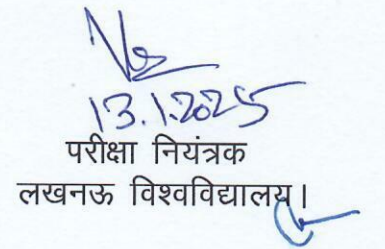 13.1.2025
परीक्षा नियंत्रक
लखनऊ विश्वविद्यालय।